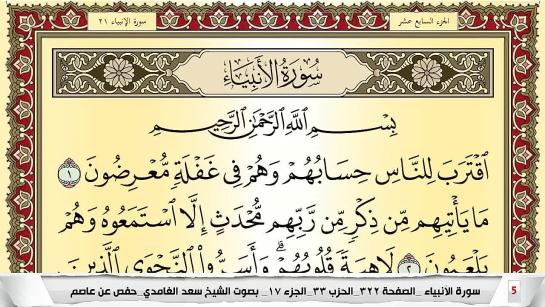 الجزء السابع عشر
سورة الأنبياء ٢١
سُورَةُ الأَنبِيَاءِ
بِسْمِ ٱللَّهِ ٱلرَّحْمَٰنِ ٱلرَّحِيمِ
ٱقْتَرَبَ لِلنَّاسِ حِسَابُهُمْ وَهُمْ فِى غَفْلَةٍ مُّعْرِضُونَ ١
مَا يَأْتِيهِم مِّن ذِكْرٍ مِّن رَّبِّهِم مُّحْدَثٍ إِلَّا ٱسْتَمَعُوهُ وَهُمْ
يَلْعَبُونَ ٢ لَاهِيَةً قُلُوبُهُمْ ۗ وَأَسَرُّوا۟ ٱلنَّجْوَى ٱلَّذِينَ
5 سورة الأنبياء _الصفحة ٣٢٢_ الحزب ٣٣_ الجزء ١٧_ بصوت الشيخ سعد الغامدي_ حفص عن عاصم